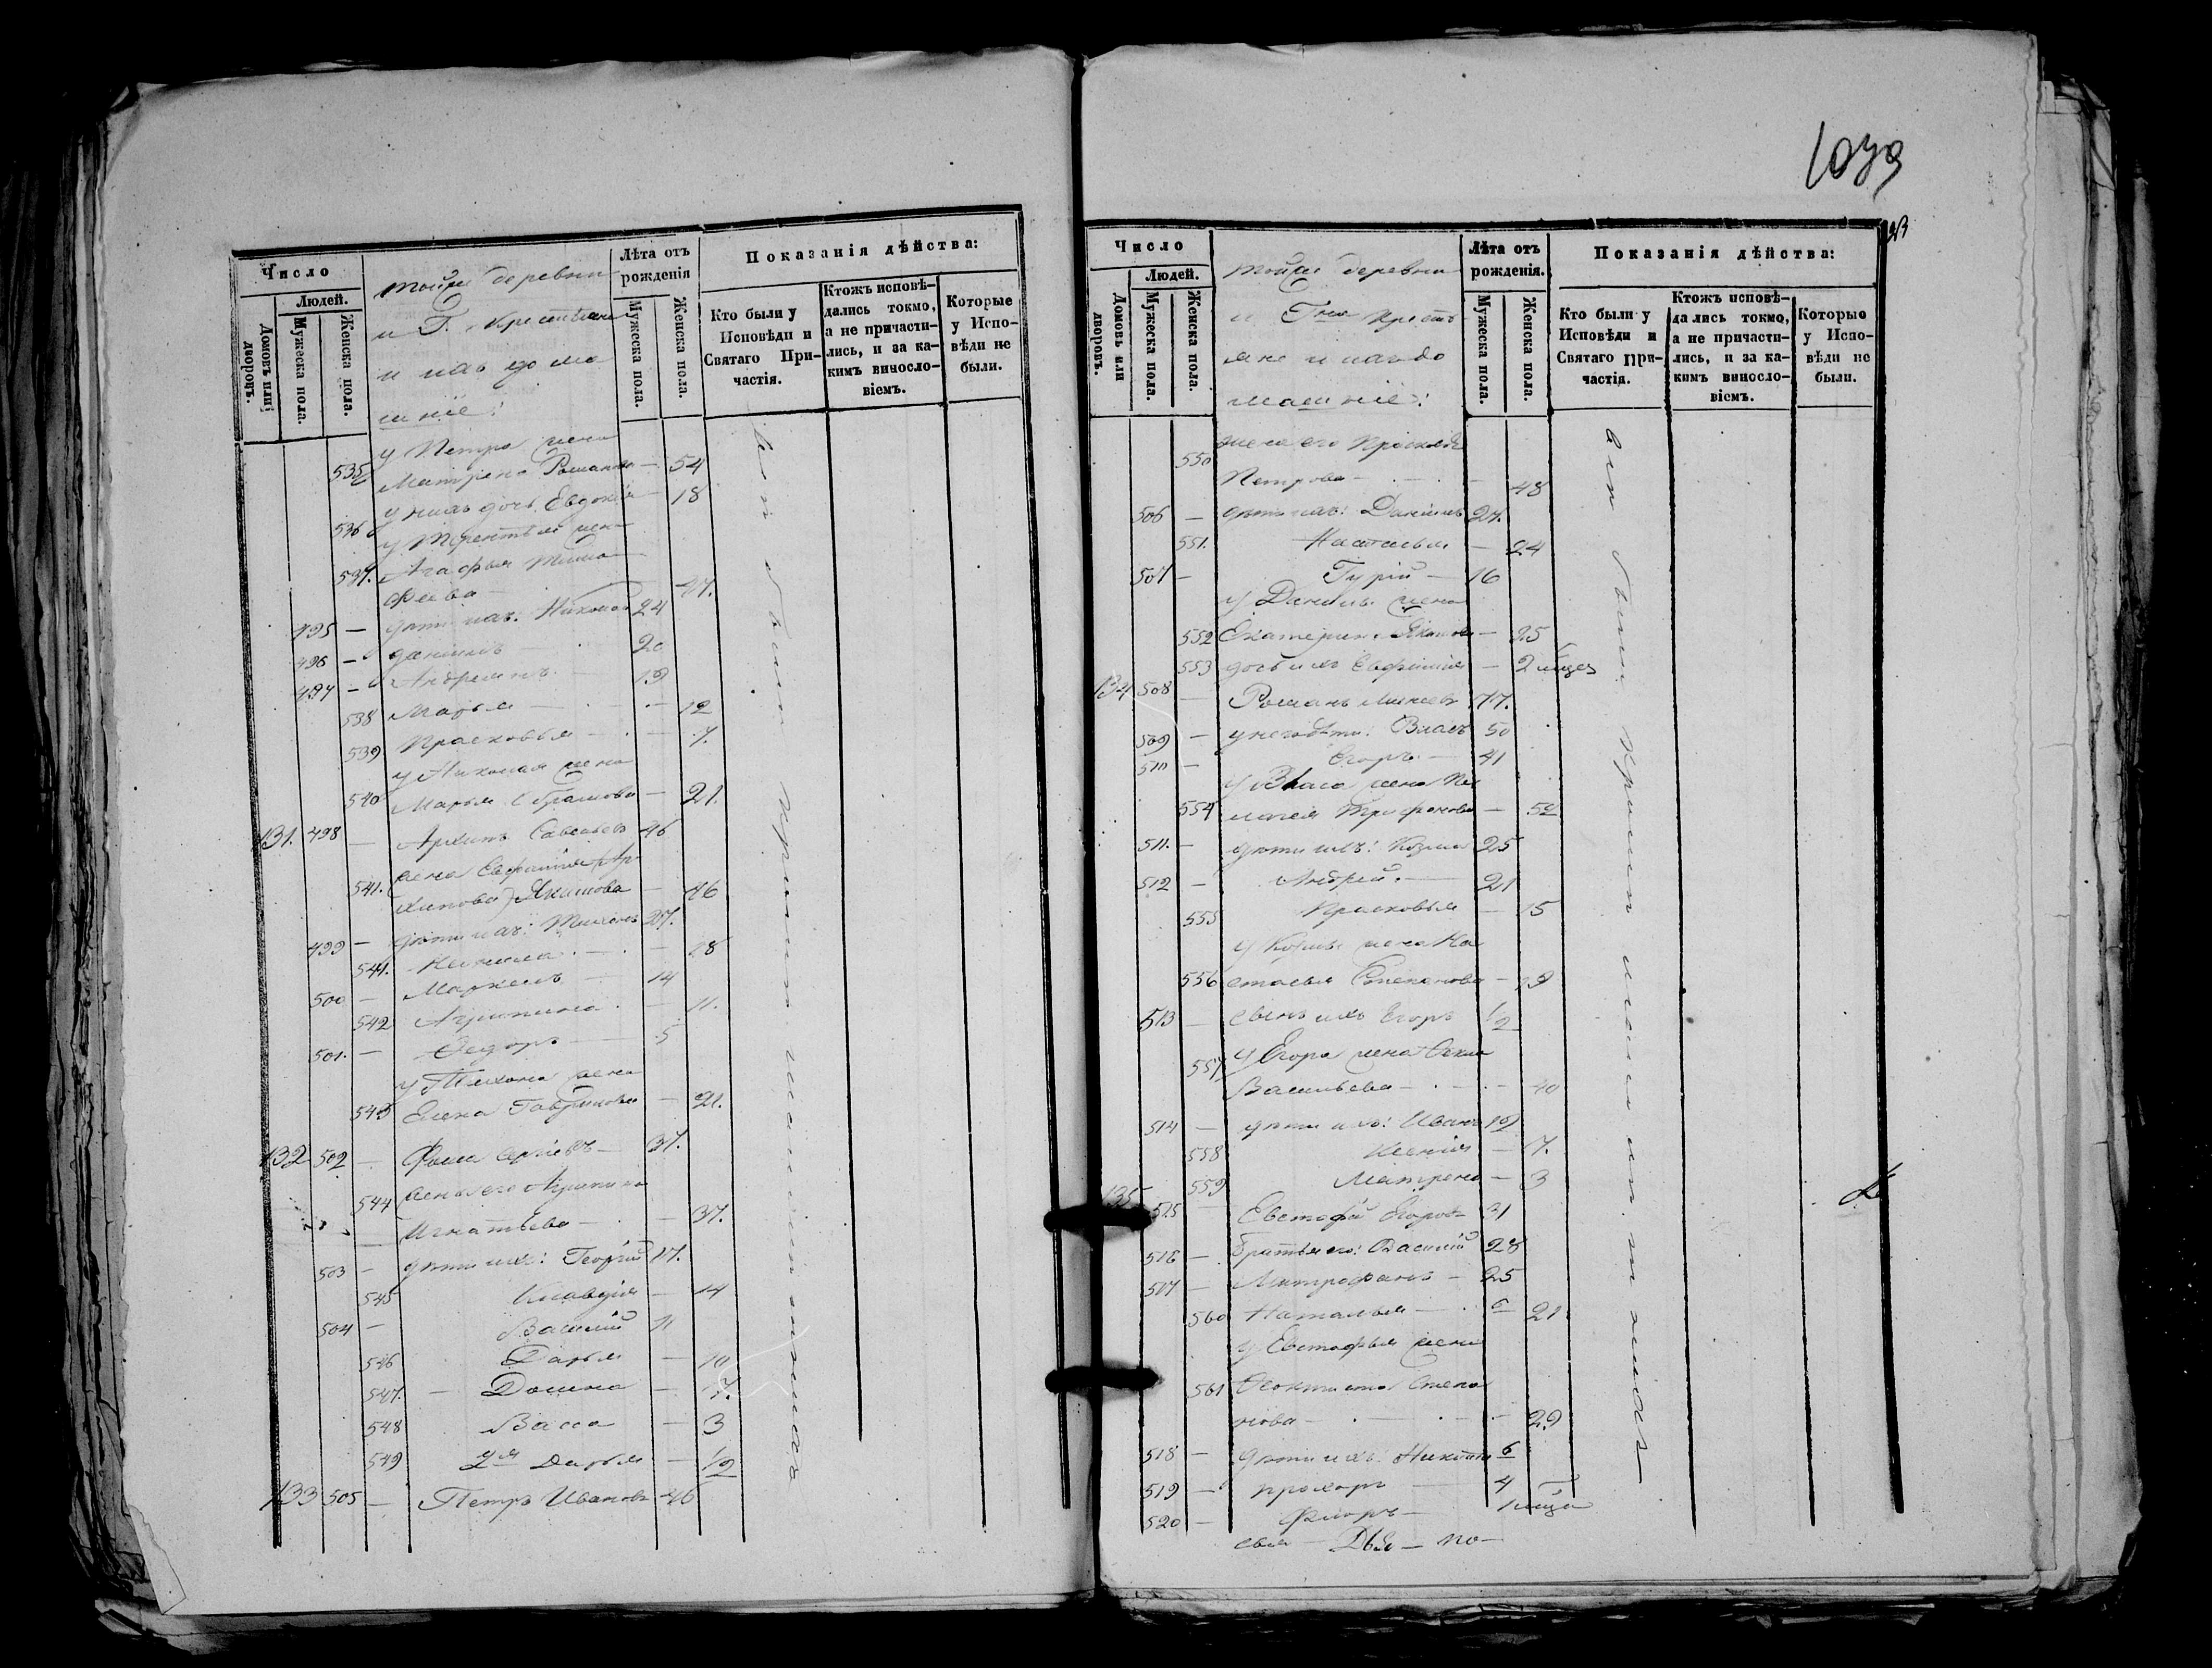 Число
Людей.
Домовъ или дворовъ.
Мужеска пола.
Женска пола.
тойже деревни
и Г. крестьяне
и ихъ дома
шніе:
Лѣта отъ рожденія
Мужеска пола.
Женска пола.
Показанія дѣйства:
Кто были у Исповѣди и Святаго Причастія.
Ктожъ исповѣдались токмо, а не причастились, и за какимъ винословіемъ.
Которые у Исповѣди не были.
у Петра жена
535 Матрена Романова — 54
536 у нихъ дочь Евдокія — 18
у Терентья жена
537. Агафья Тимо
феева — 47.
495 — дѣти ихъ: Николай 24
496 — Даніилъ 20
497 — Андреянъ 19
538 Марья — 12
539 Прасковья — 7.
у Николая жена
540 Марья Абрамова — 21.
131. 498 — Архипъ Савельевъ 46
541. жена Евфимія (Ар
хипова) Якимова — 46
499 — дѣти ихъ: Тихонъ 27.
541. — 18
500 — Маркелъ 14
542 Агрипина — 11.
501. — Ѳедоръ 5
у Тихона жена
543 Елена Гаврилова — 21.
132 502 — Фома Сергѣевъ — 37.
544 жена его Агрипина
Игнатьева — 37.
503 — дѣти ихъ: Георгій 17.
545 Клавдія — 14
504 — Василій 11
546 Дарья — 10
547. — Домна — 7.
548 Васса — 3
549 2я Дарья — 1/2
133 505 — Петръ Ивановъ 46
вси были причт исполнители
1039
Число
Людей.
Домовъ или дворовъ.
Мужеска пола.
Женска пола.
тойже деревни
и Гна кресть
яне и ихъ до
машніе:
Лѣта отъ рожденія.
Мужеска пола.
Женска пола.
Показанія дѣйства:
Кто были у Исповѣди и Святаго Причастія.
Ктожъ исповѣдались токмо, а не причастились, и за какимъ винословіемъ.
Которые у Исповѣди не были.
550 жена его Прасковья
Петрова — 48
506 — дѣти ихъ: Даніилъ 27.
551. Настасья — 24
507 — Гурій — 16
у Данила жена
552 Екатерина Якимова — 25
553 дочь ихъ Евфимія — 2 мѣсяц
134 508 — Романъ Минеевъ 77.
509 — у него дѣти: Власъ 50
510 — Егоръ — 41
у Власа жена Пе
554 лагея Трифонова — 52
511. — дѣти ихъ: Козма 25
512 — Андрей. 21
555 Прасковья — 15
у Козмы жена На
556 стасья Степанова — 19
513 — сынъ ихъ Егоръ 1/2
557 у Егора жена Ѳекла
Васильева — 40
514 — дѣти ихъ: Иванъ 12
558 Ксенія — 7.
559 Матрена — 3
135 515 — Евстафій Егоровъ 31
516 — братья его: Василій 28
517 — Митрофанъ — 25
560 Наталья — 21
у Евстафья жена
561 Ѳеоктиста Степа
нова — 29
518 — дѣти ихъ: Никита 6
519 — Прохоръ 4
520 — Флоръ — 1 мѣсяца